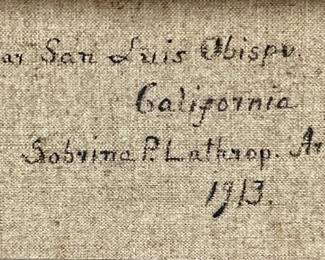 ar San Luis Obispo.
California
Sobrina P. Lathrop. Ar
1913.